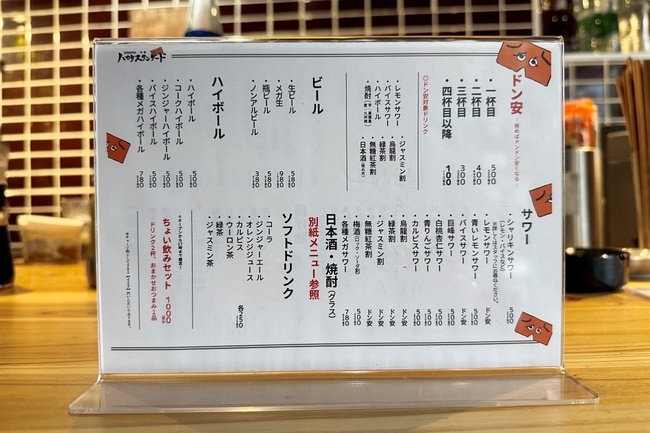 ドン安
飲めば飲むほどドンドン安くなる
・一杯目 510
・二杯目 400
・三杯目 300
・四杯目以降 100
◎ドン安対象ドリンク
・レモンサワー
・バイスサワー
・ハイボール
・焼酎
・ジャスミン割
・烏龍割
・緑茶割
・無糖紅茶割
・日本酒
ビール
・生ビール 580
・メガ生 980
・瓶ビール 580
・ノンアルビール 380
ハイボール
・ハイボール 510
・コークハイボール 510
・ジンジャーハイボール 510
・バイスハイボール 510
・各種メガハイボール 780
サワー
・シャリキンサワー 510
(レモン・バイスなど)
・レモンサワー ドン安
・青いレモンサワー 510
・バイスサワー ドン安
・巨峰サワー 510
・白桃杏仁サワー 510
・青りんごサワー 510
・カルピスサワー 510
・烏龍割 ドン安
・緑茶割 ドン安
・ジャスミン割 ドン安
・無糖紅茶割 ドン安
・梅酒(ロック・ソーダ割) 510
・各種メガサワー 780
日本酒・焼酎(グラス)
別紙メニュー参照
ソフトドリンク
・コーラ
・ジンジャーエール
・オレンジジュース
・カルピス
・ウーロン茶
・緑茶
・ジャスミン茶
各250
ちょい飲みセット 1000
ドリンク2杯、おまかせおつまみ1品